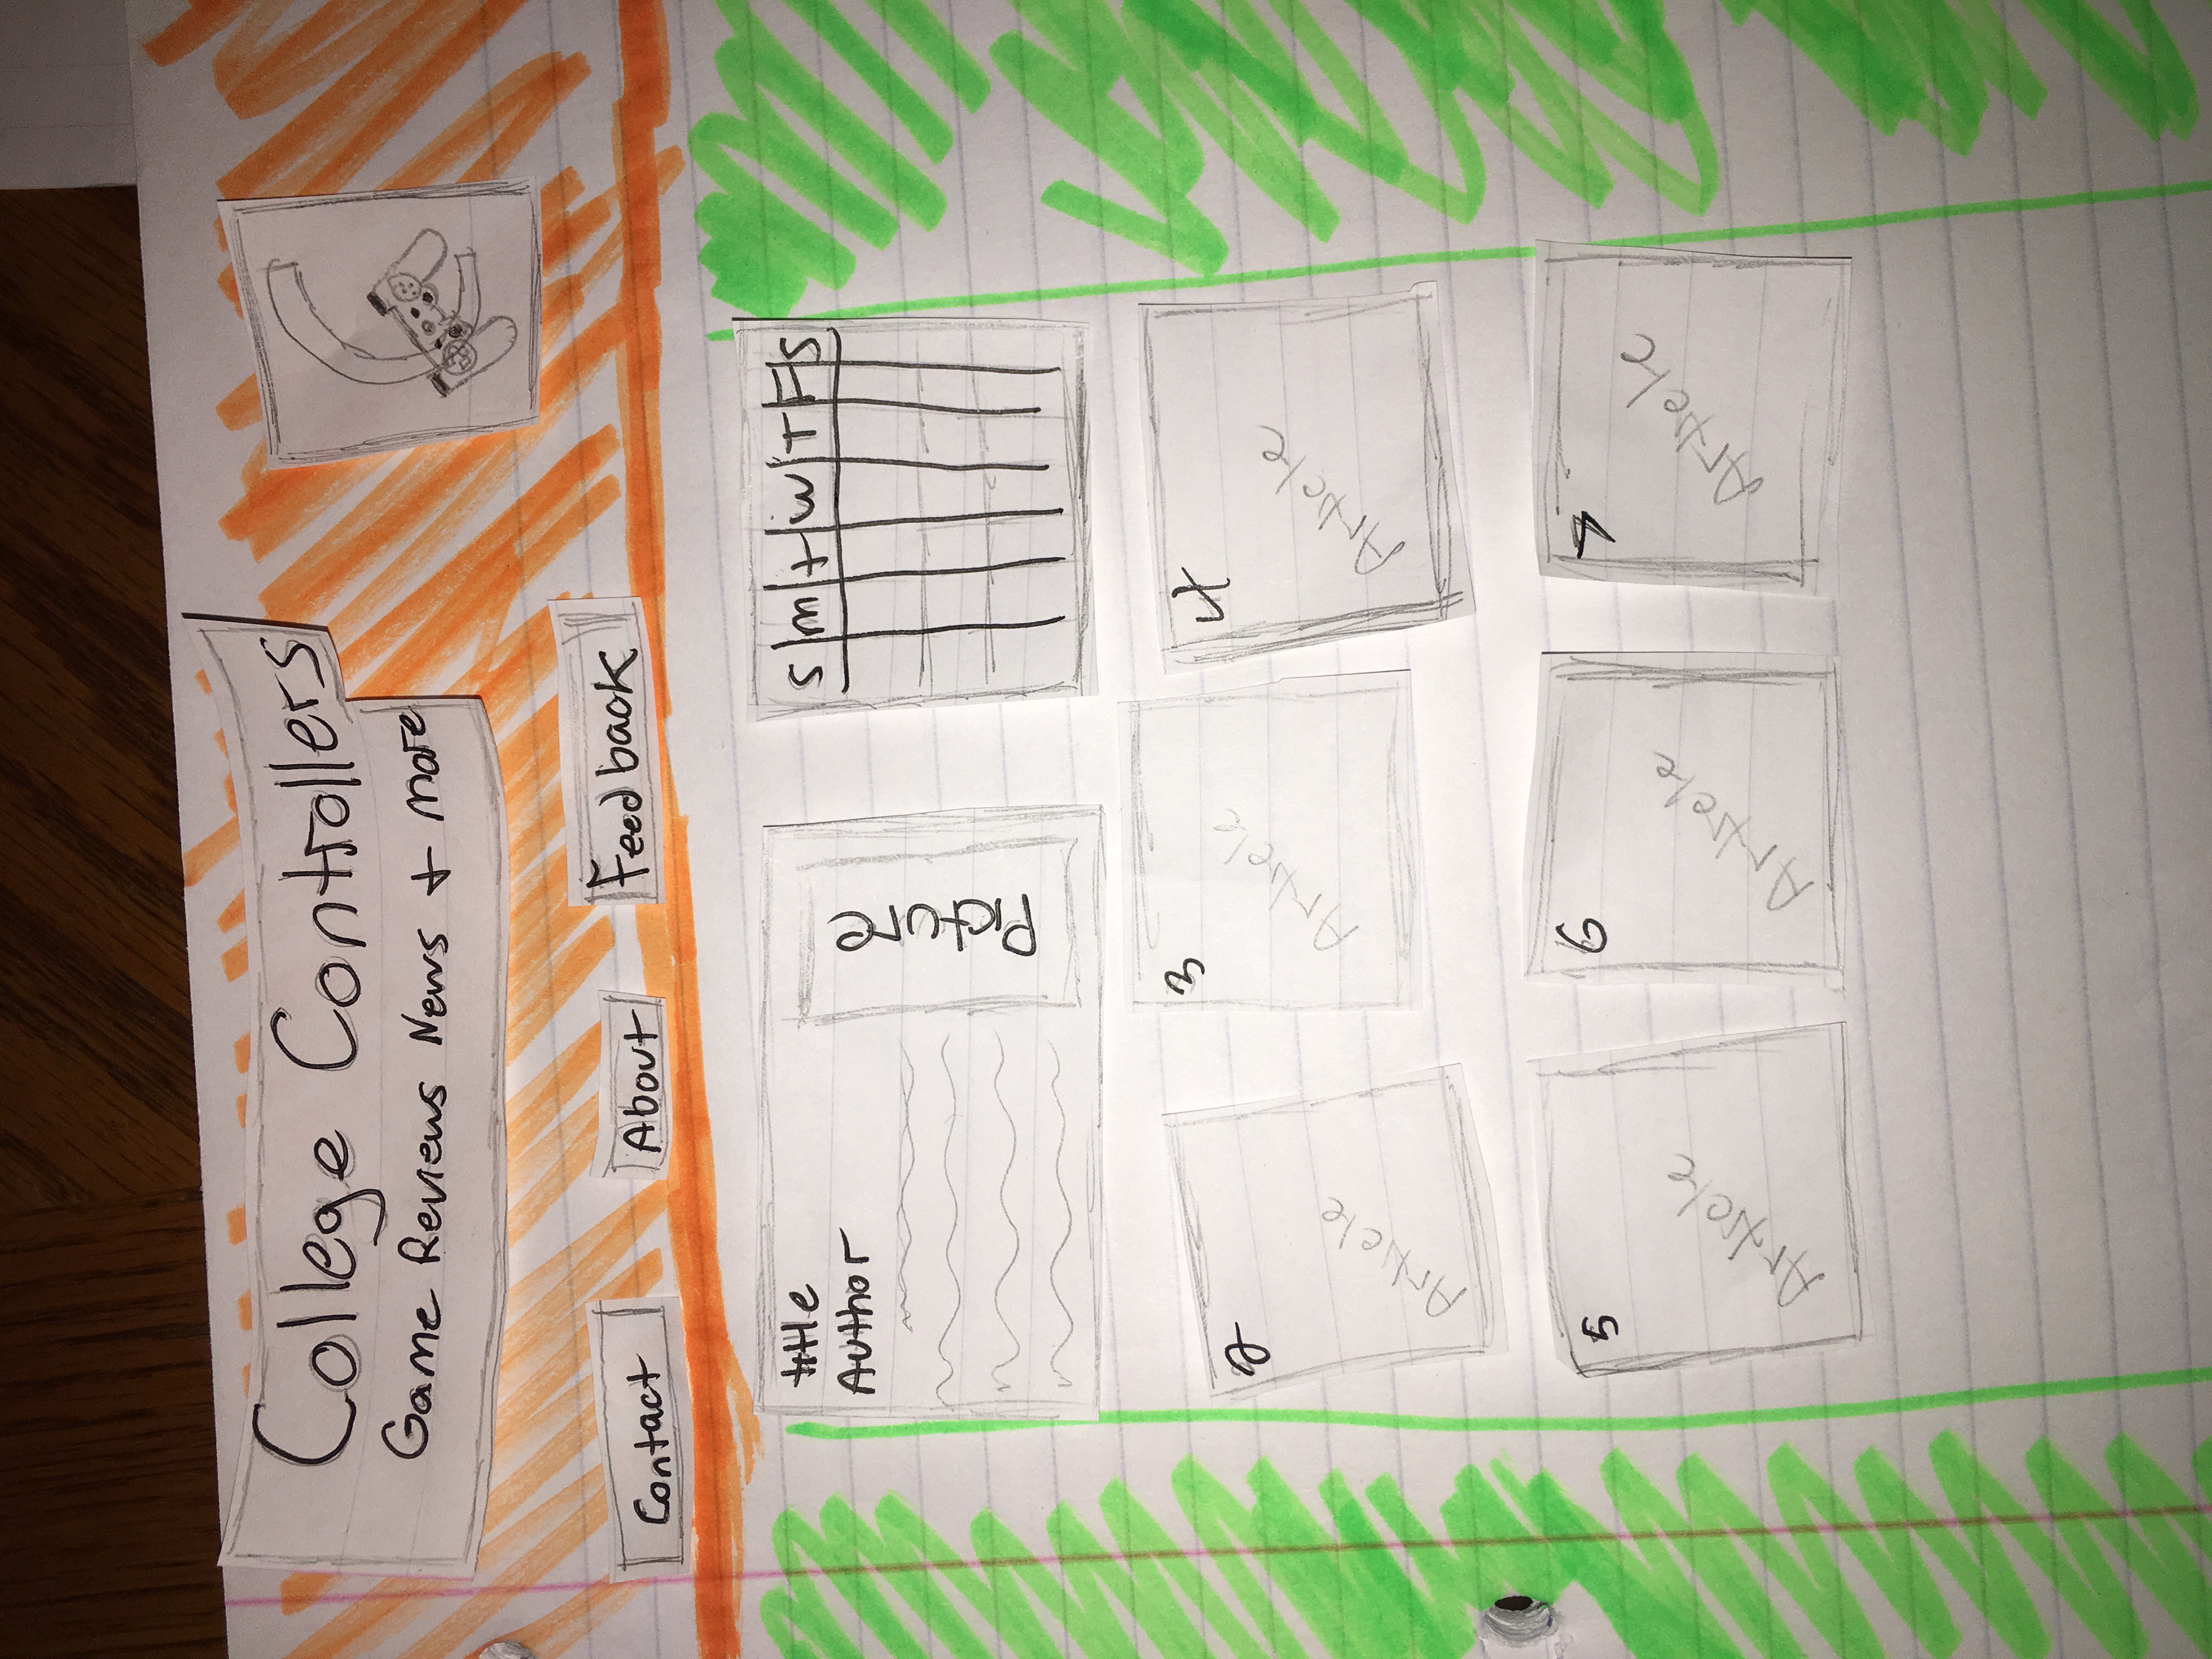 College Controllers
Game Reviews News + more
Contact
About
Feedback
title
Author
Picture
S M T W T F S
2
Article
3
Article
4
Article
5
Article
6
Article
7
Article